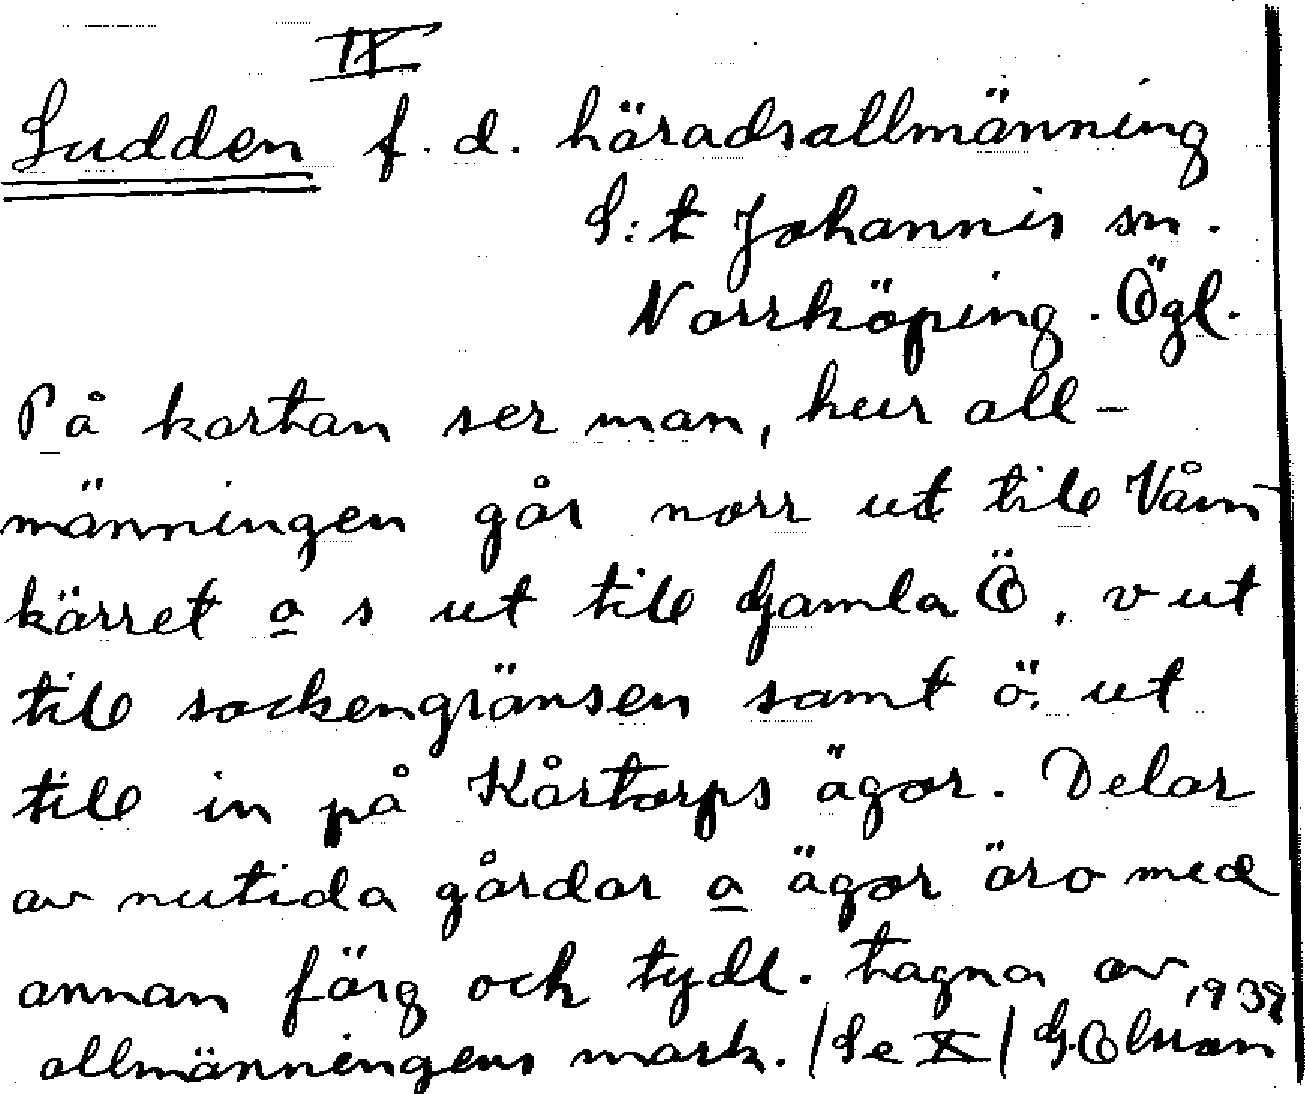 IX
Sudden f. d. häradsallmänning
S:t Johannis sn.
Norrköping. Ögl.
På kartan ser man, hur all-
männingen går norr ut till Våm
kärret o s ut till Gamla Ö, v ut
till sockengränsen samt ö. ut
till in på Kårtorps ägor. Delar
av nutida gårdar o ägor äro med
annan färg och tydl. tagna av
allmänningens mark. /Se X/ G.Olsson
1939